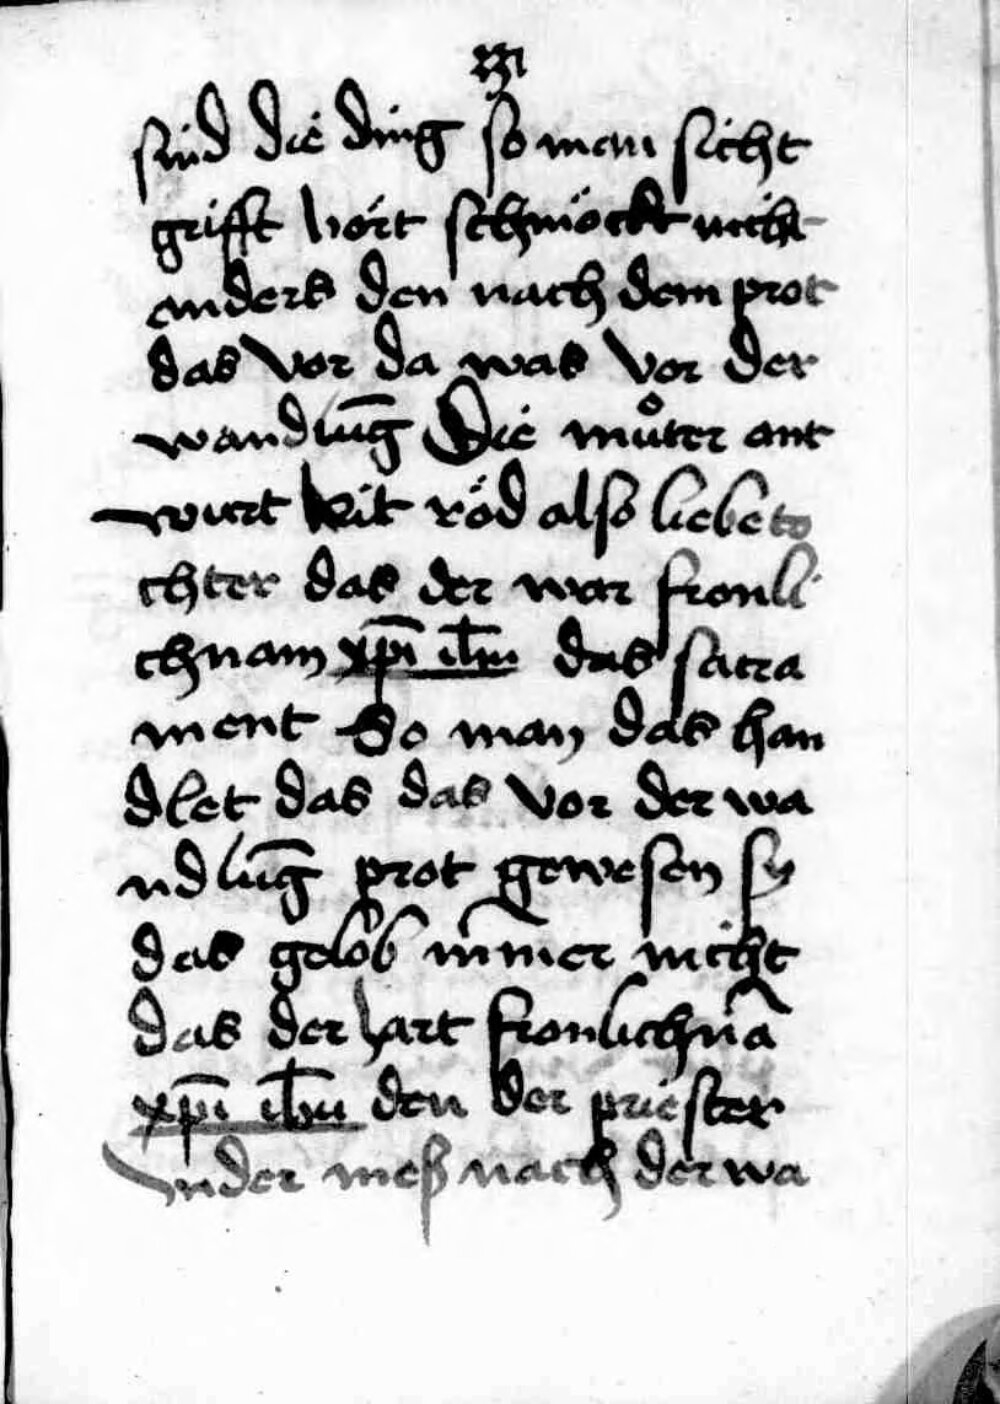 sind die ding so man sicht
grifft hört schmöckt nicht
anders den nach dem prot
das vor da was vor der
wandlūg Die můter ant
wurt Nit röd also liebe to
chter das der war fronli
chnam xp̄i ih̄u das sacra
ment So man das han
dlet das das vor der wa
ndlūg prot gewesen sy
das gelob ni̅mer nicht
das der zart fronlichnā
xp̄i ih̄u den der priester
vnder meß nach der wa